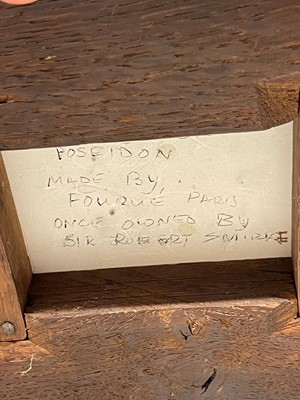 POSEIDON
MADE BY
FOUQUE PARIS
ONCE OWNED BY
SIR ROBERT SMIRKE